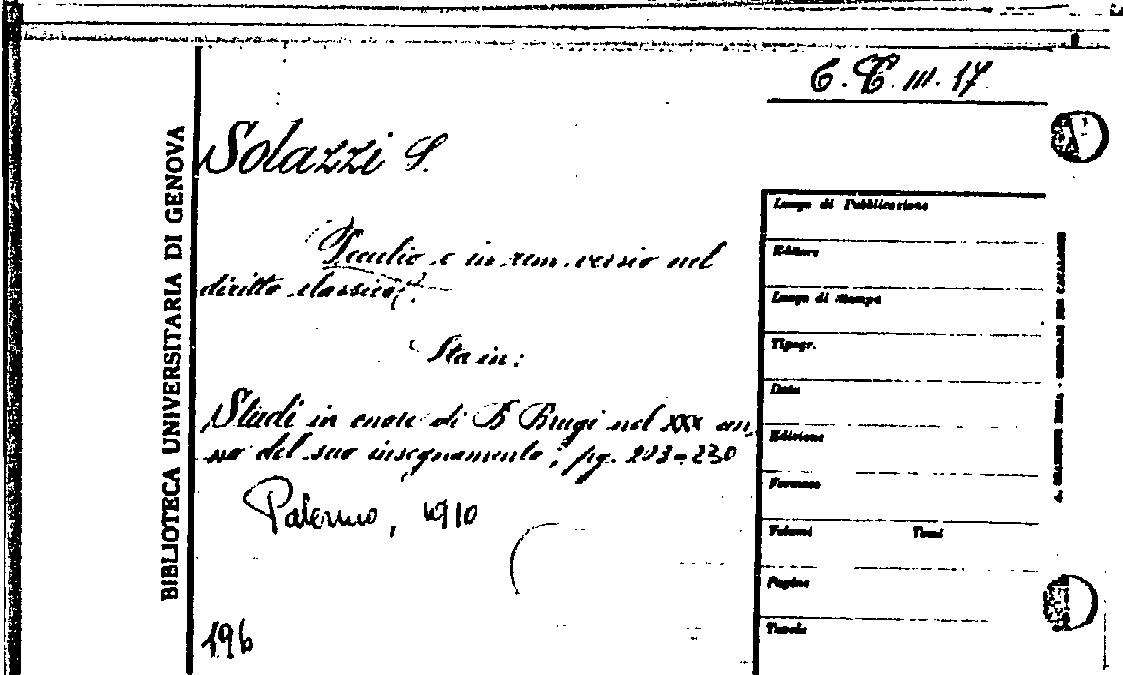 6.C.III.17
BIBLIOTECA UNIVERSITARIA DI GENOVA
Solazzi S.
Peculio e in rem versio nel
diritto classico.
Sta in:
Studi in onore di B Brugi nel XXX an
no del suo insegnamento; pg. 203-230
Palermo, 1910
196
Luogo di Pubblicazione
Editore
Luogo di stampa
Tipogr.
Data
Edizione
Formato
Volumi Tomi
Pagine
Tavole